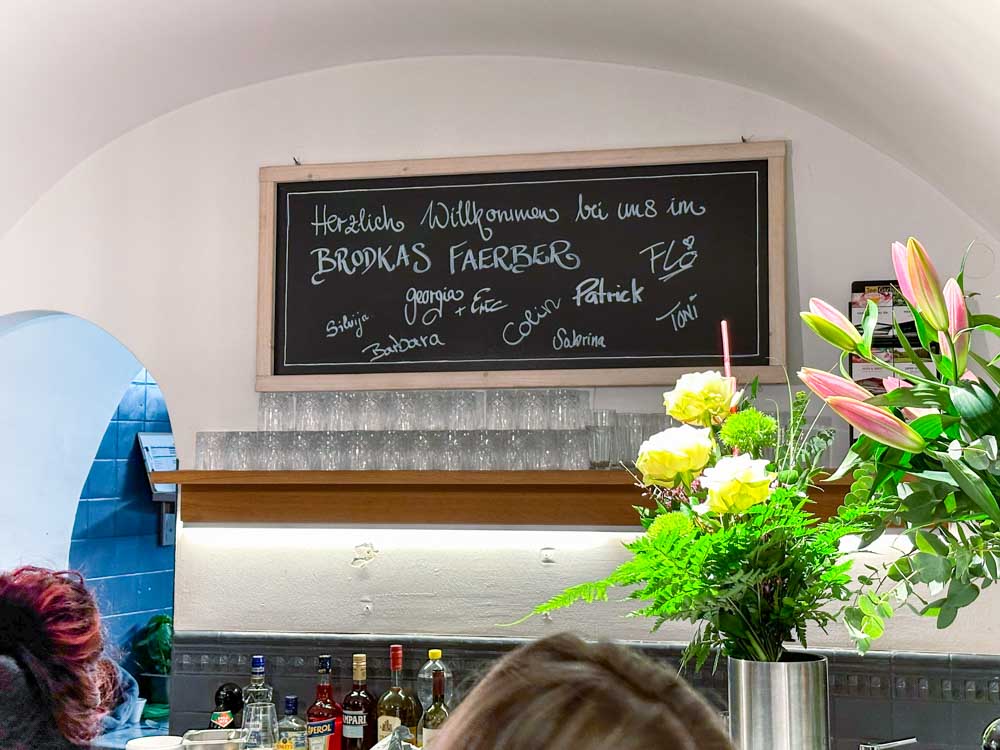 Herzlich Willkommen bei uns im
BRODKAS FAERBER
FLO
georgia
+ Eric
Colin
Patrick
Toni
Silvija
Barbara
Sabrina
APEROL
CAMPARI